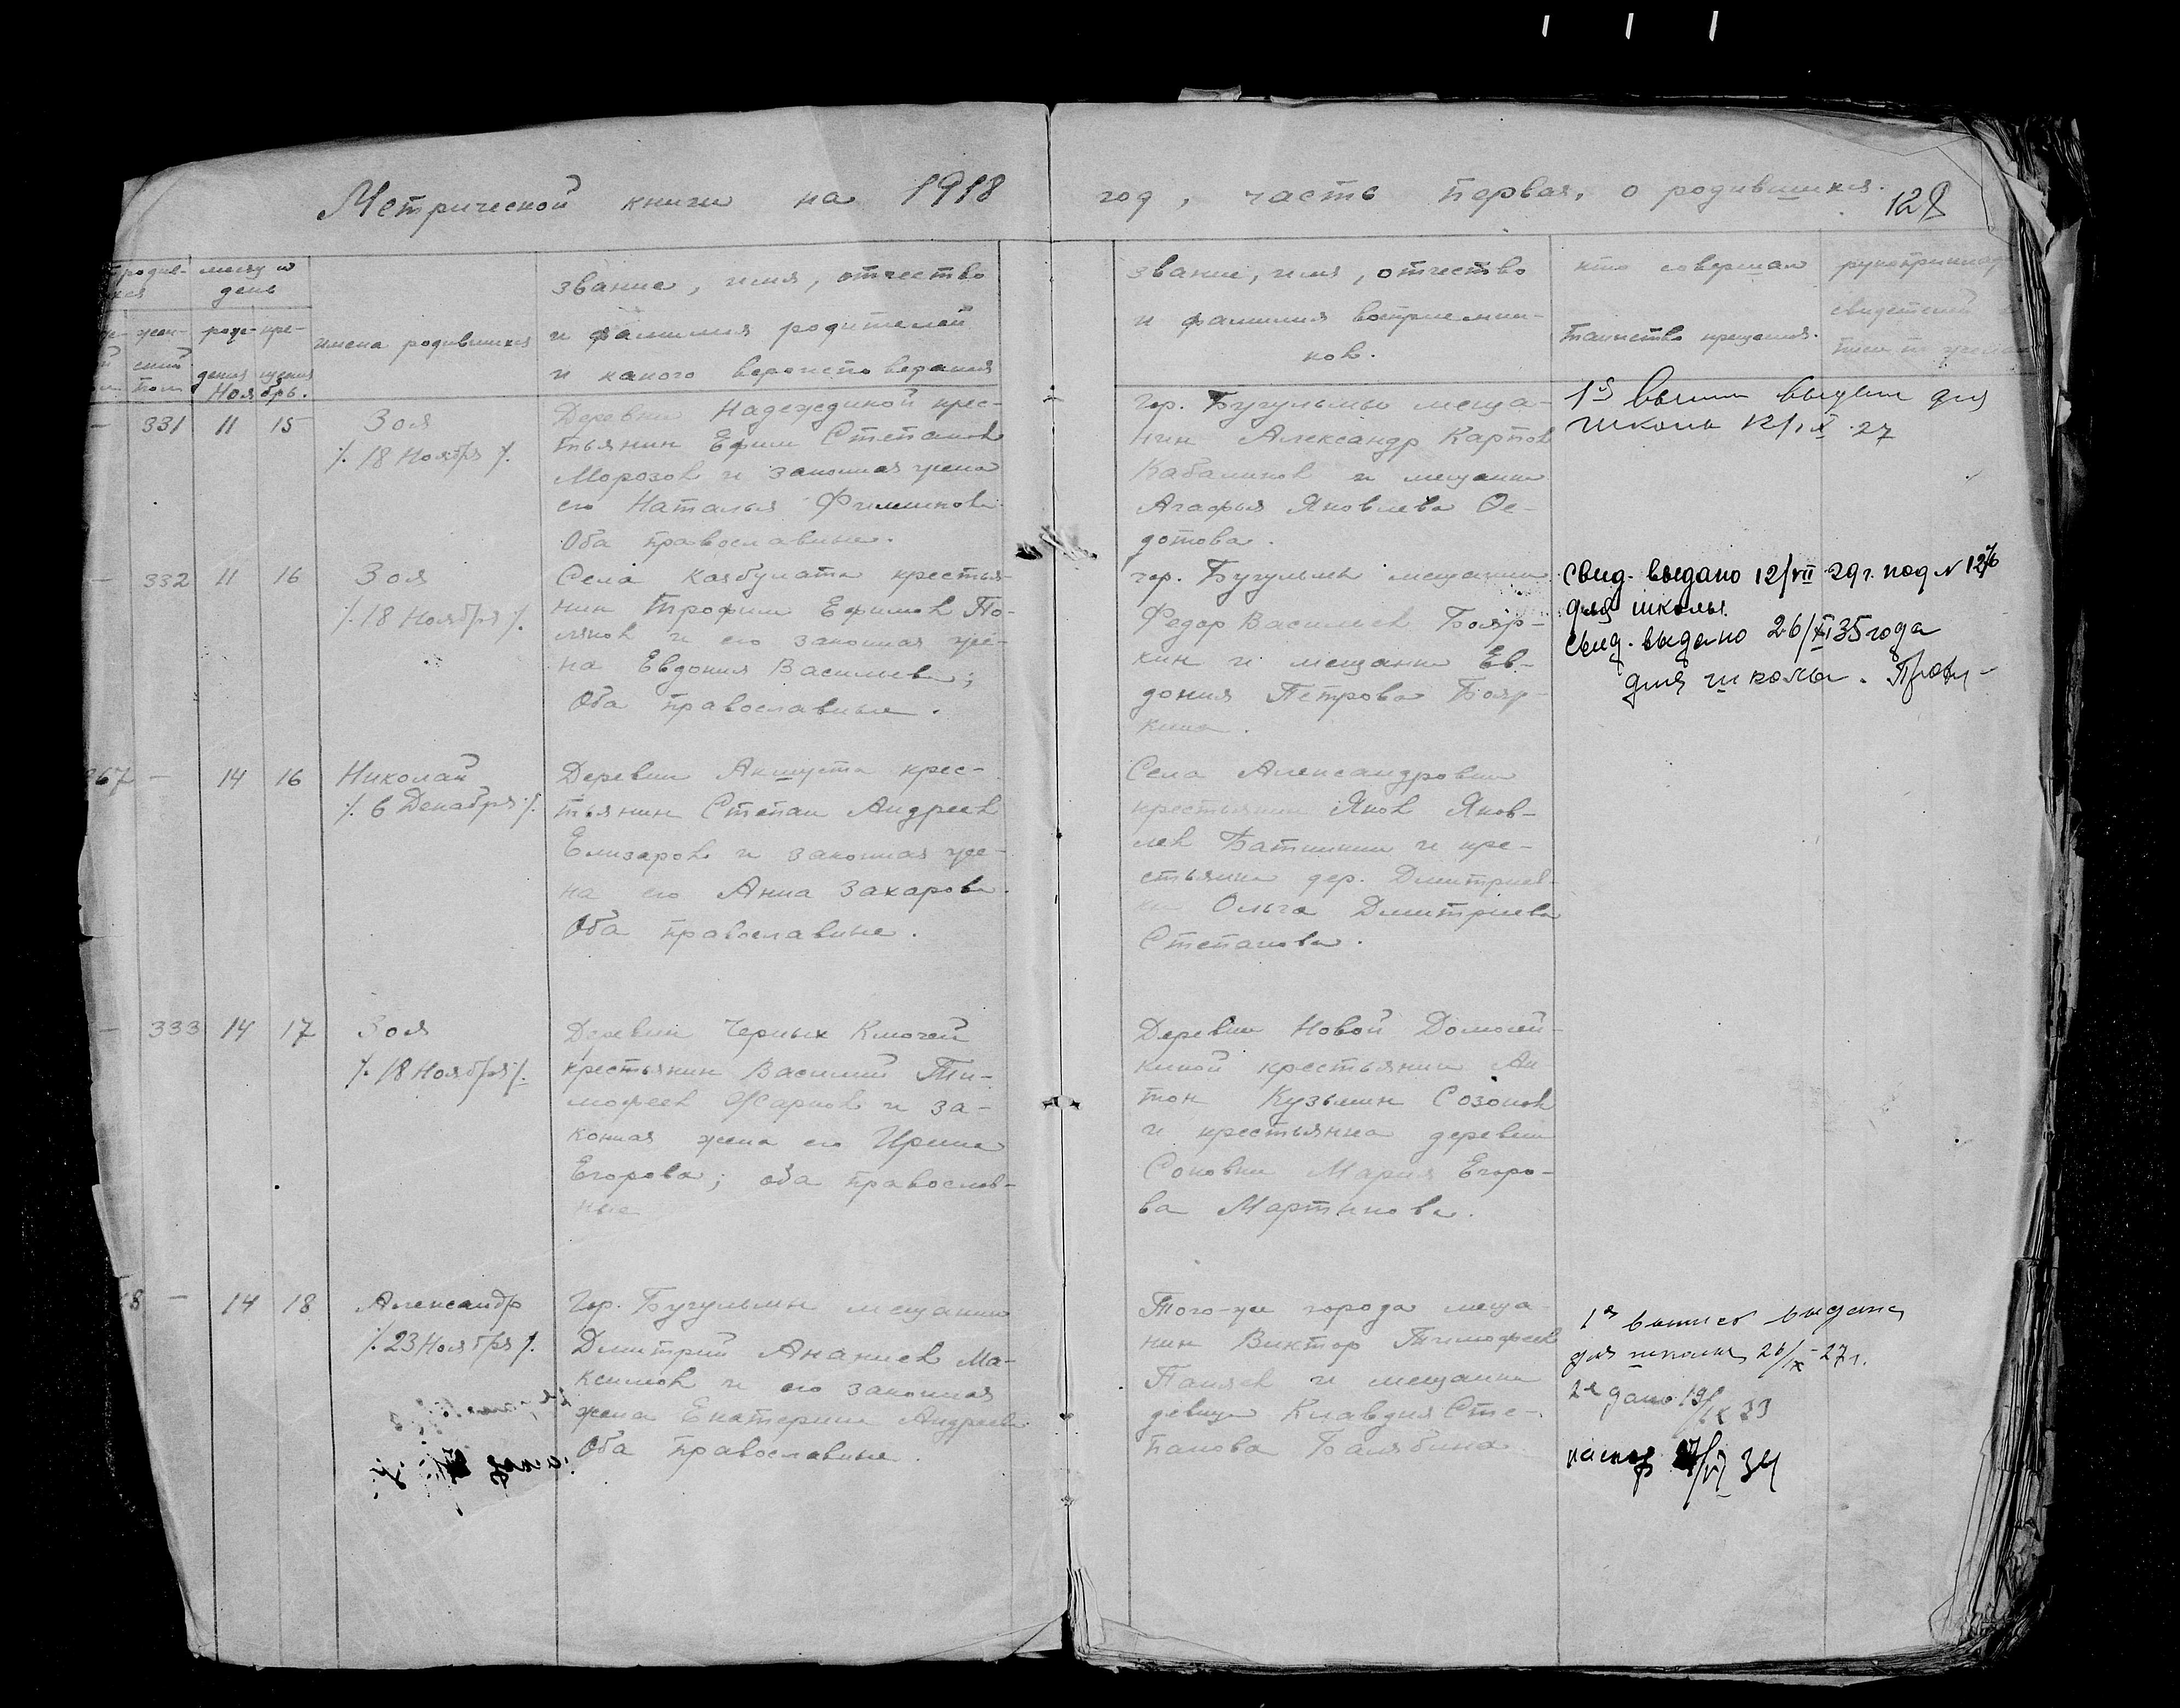 Метрической книги на 1918 год, часть первая, о родившихся.
128
месяц и
день
жен-
ский
пол
рож-
дения
кре-
щения
Ноябрь.
имена родившихся
звание, имя, отчество
и фамилия родителей
и какого вероисповедания
звание, имя, отчество
и фамилия восприемни-
ков.
кто совершал
таинство крещения.
рукоприклад
свидетелей
331 11 15
Зоя
/. 18 Ноября /.
Деревни Надеждиной крес-
тьянин Ефим Степанов
Морозов и законная жена
его Наталья
Оба православные.
гор. Бугульмы меща-
нин Александр Карпов
Кабанков и мещанка
Агафья Яковлева Ое-
дотова.
1я выпись выдана для
школы 12/IX 27
— 332 11 16
Зоя
/. 18 Ноября /.
Села крестья-
нин Трофим Ефимов По-
ляков и его законная же-
на Евдокия Васильева;
Оба православные.
гор. Бугульмы мещанин
Федор Васильев Бояр-
кин и мещанка Ев-
докия Петрова Бояр-
кина.
свид. выдано 12/VII 29г. под №
для школы.
свид. выдано 26/XI 35 года
для школы.
267 — 14 16
Николай
/. 6 Декабря /.
Деревни Акшута крес-
тьянин Степан Андреев
Елизаров и законная же-
на его Анна Захарова.
Оба православные.
Села Александровки
крестьянин Яков Яков-
лев и кре-
стьянка дер. Дмитриев-
ки Ольга Дмитриева
Степанова.
— 333 14 17
Зоя
/. 18 Ноября /.
Деревни Черных Ключей
крестьянин Василий Ти-
мофеев Жарков и за-
конная жена его Ирина
Егорова; оба православ-
ные
Деревни Новой Домосей-
киной крестьянин Ан
тон Кузьмин Созонов
и крестьянка деревни
Соковки Мария Егоро-
ва Мартынова.
8 — 14 18
Александр
/. 23 Ноября /.
Гор. Бугульмы мещанин
Дмитрий Ананиев Ма-
ксимов и его законная
жена Екатерина Андреева
Оба православные.
Того-же города меща-
нин Виктор Тимофеев
и мещанка
девица Клавдия Сте-
панова Балябина
1я выпись выдана
для школы 26/IX-27г.
2е дано 19/IX 33
34